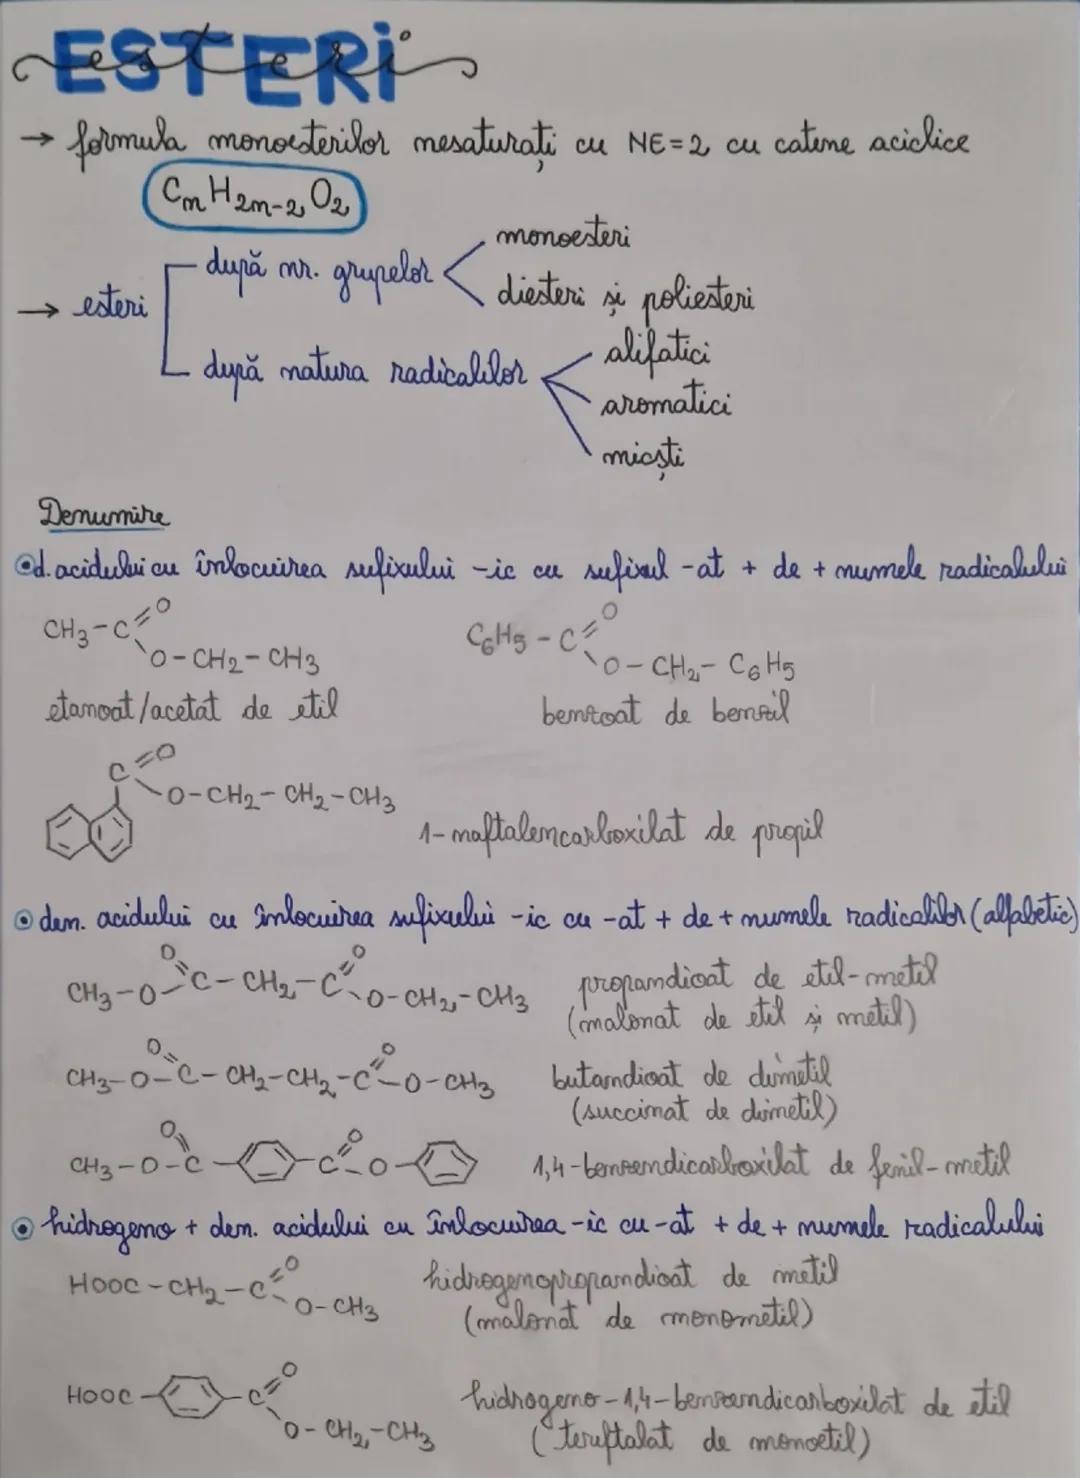 ESTERI
esteri
→ formula monoesterilor nesaturați cu NE=2 cu catene aciclice
CnH2n-2O2
→ esteri
după nr. grupelor
monoesteri
diesteri și poliesteri
după natura radicalilor
alifatici
aromatici
micști
Denumire
d. acidului cu înlocuirea sufixului -ic cu sufixul -at + de + numele radicalului
CH3-C=O
O-CH2-CH3
etanoat/acetat de etil
C6H5-C=O
O-CH2-C6H5
benzoat de benzil
C=O
O-CH2-CH2-CH3
1-naftalencarboxilat de propil
den. acidului cu înlocuirea sufixului -ic cu -at + de + numele radicalilor (alfabetic)
O O
CH3-O-C-CH2-C-O-CH2-CH3
propandioat de etil-metil
(malonat de etil și metil)
O O
CH3-O-C-CH2-CH2-C-O-CH3
butandioat de dimetil
(succinat de dimetil)
O O
CH3-O-C C-O
1,4-benzendicarboxilat de fenil-metil
hidrogeno + den. acidului cu înlocuirea -ic cu -at + de + numele radicalului
HOOC-CH2-C=O
O-CH3
hidrogenopropandioat de metil
(malonat de monometil)
HOOC C=O
O-CH2-CH3
hidrogeno-1,4-benzendicarboxilat de etil
(tereftalat de monoetil)